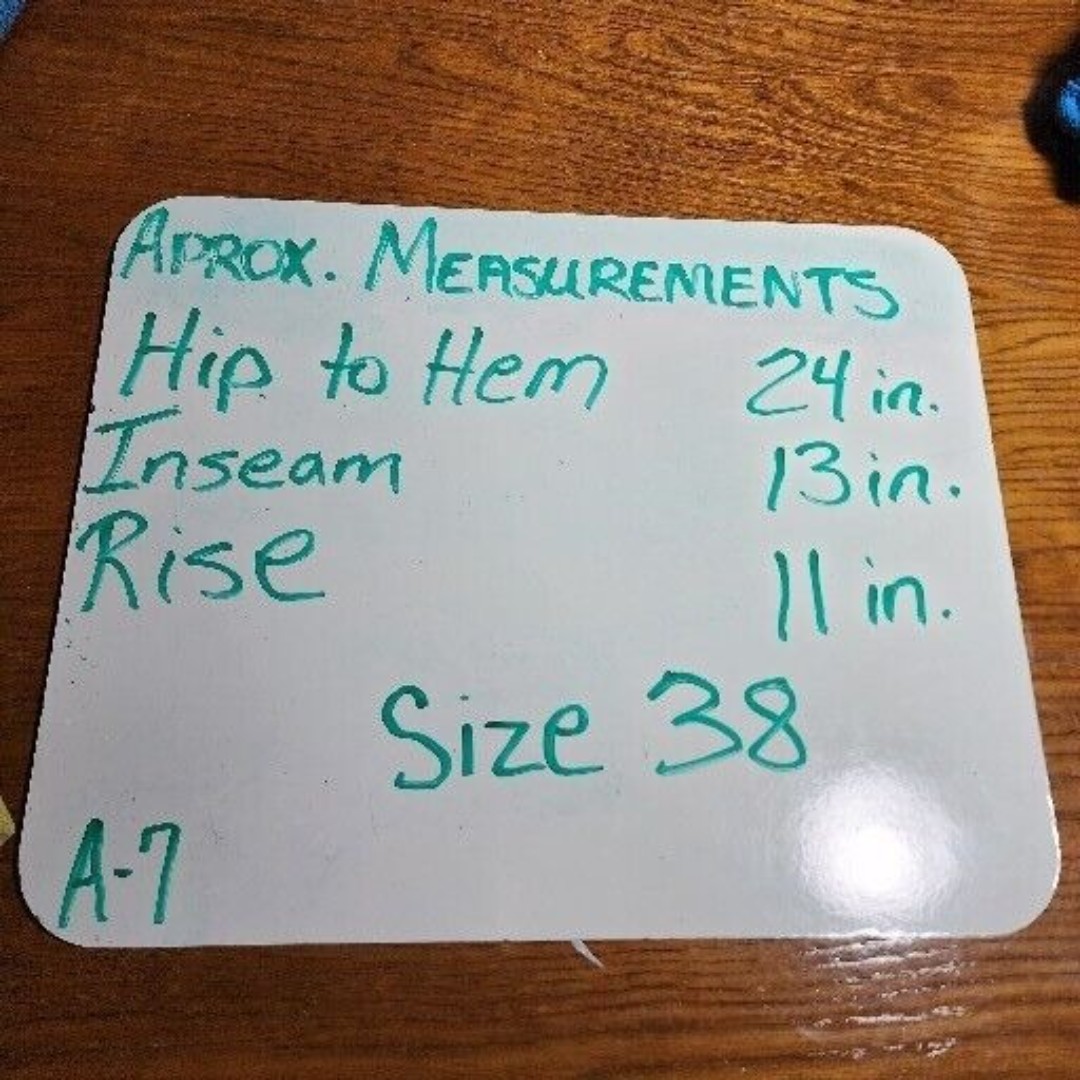 APROX. MEASUREMENTS
Hip to Hem 24 in.
Inseam 13 in.
Rise 11 in.
Size 38
A-7